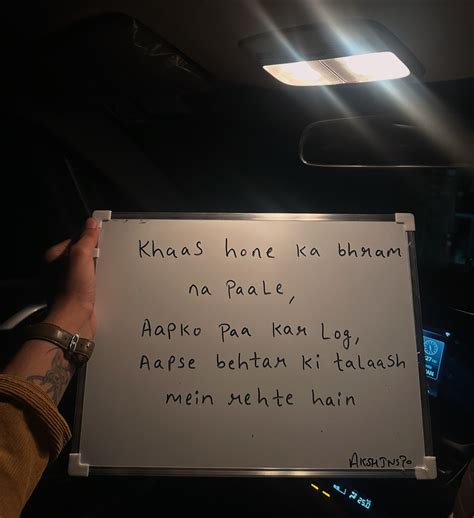 Khaas hone ka bhram
na paale,
Aapko paa kar log,
Aapse behtar ki talaash
mein rehte hain